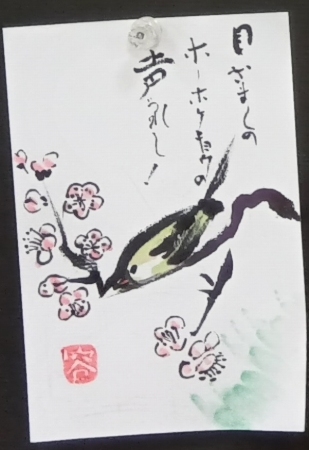 目ざましの
ホーホケキョウの
声うれし！